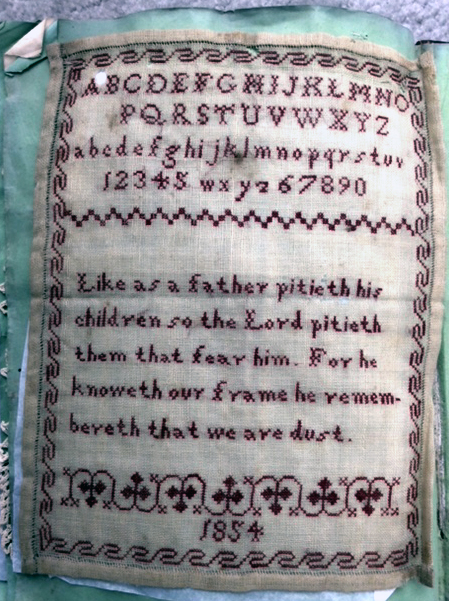 ABCDEFGHIJKLMNO
PQRSTUVWXYZ
abcdefghijklmnopqrstuv
12345 wxyz 67890
Like as a father pitieth his
children so the Lord pitieth
them that fear him. For he
knoweth our frame he remem-
bereth that we are dust.
1854